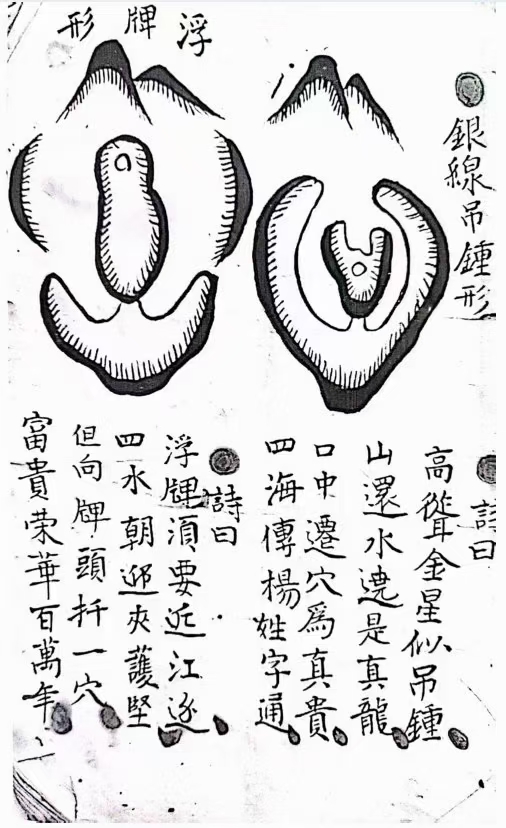 銀線吊鍾形
詩曰
高聳金星似吊鍾
山還水遶是真龍
口中遷穴為真貴
四海傳楊姓字通
浮牌形
詩曰
浮牌須要近江
四水朝迎夾護堅
但向牌頭扦一穴
富貴荣華百萬年